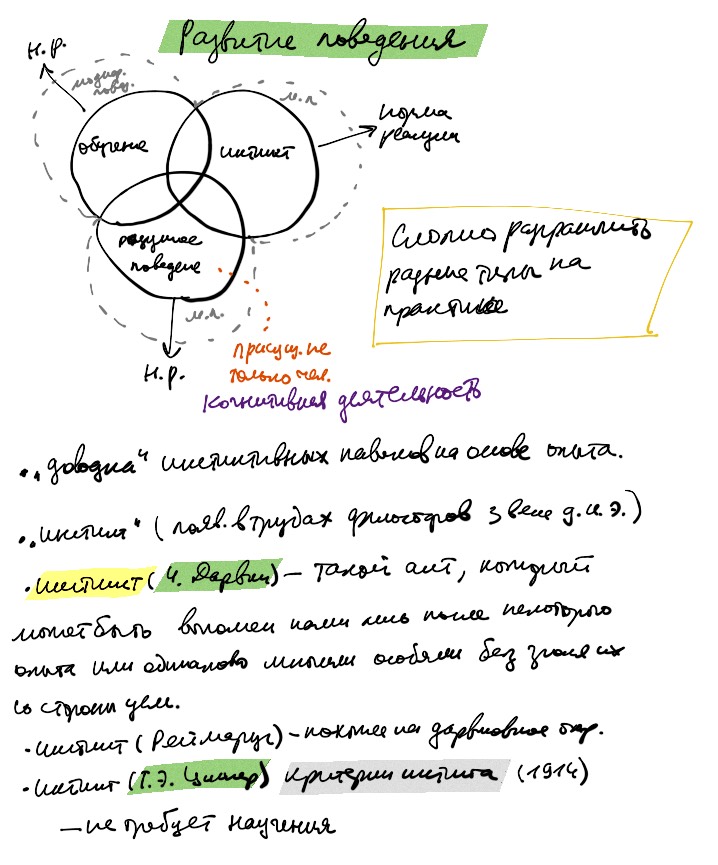 Развитие поведения
Н.Р.
модиф.
повед.
м.п.
обучение
инстинкт
норма
реакции
разумное
поведение
м.п.
Н.Р.
присущ. не
только чел.
Когнитивная деятельность
Сложно разграничить
разные типы на
практике
• „доводка“ инстинктивных навыков на основе опыта.
• „инстинкт“ (появ. в трудах философов 3 веке д.н.э.)
• инстинкт (Ч. Дарвин) – такой акт, который
может быть выполнен нами лишь после некоторого
опыта или одинаково многими особями без знания их
со стороны цели.
• инстинкт (Реймарус) – похожее на дарвиновское опр.
• инстинкт (Г.Э. Циглер) критерии инстинкта (1914)
— не требует научения